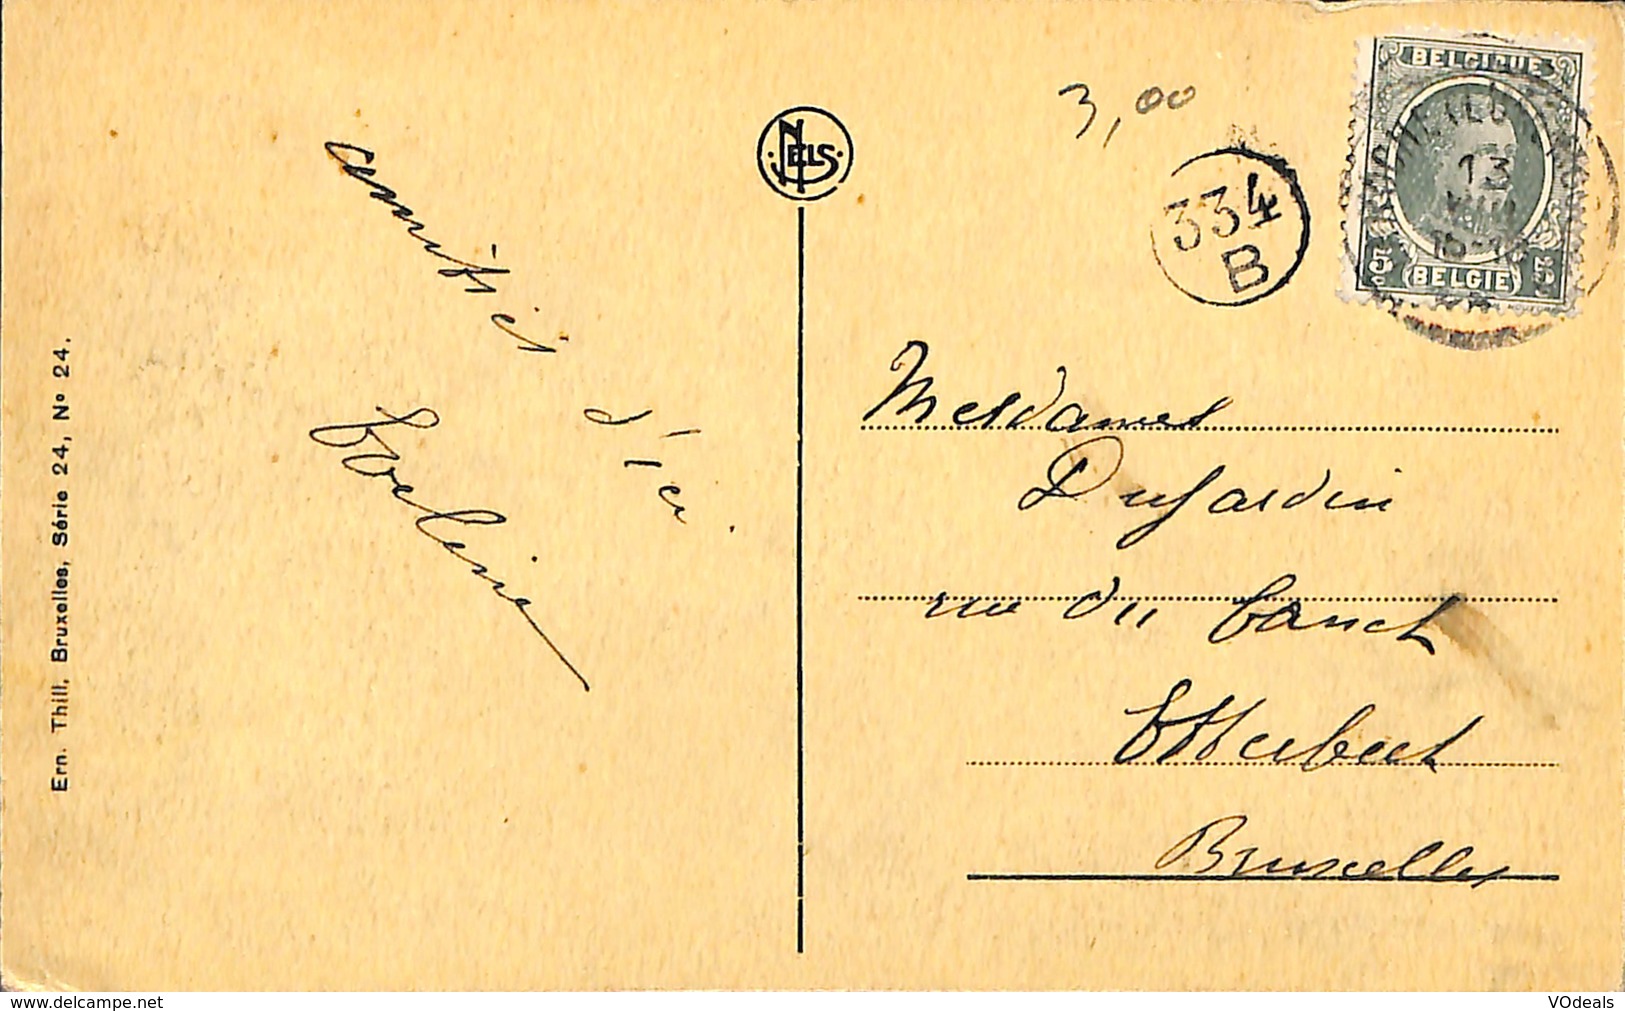 Ern. Thill, Bruxelles, Série 24, Nº 24.
amitiés d'ici.
NELS
3,00
334
B
BELGIQUE
13
VIII
5 5
BELGIE
Mesdames
Dujardin
rue du
Etterbeek
Bruxelles
VOdeals
delcampe.net